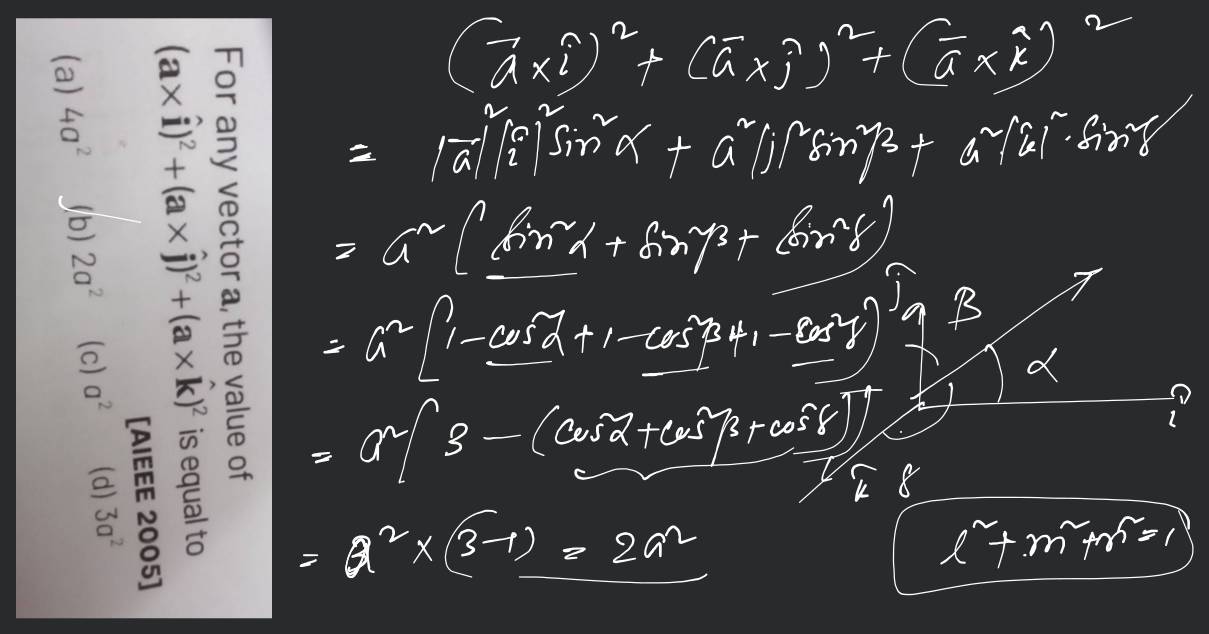 For any vector a, the value of
(a × î)² + (a × ĵ)² + (a × k̂)² is equal to
[AIEEE 2005]
(a) 4a² (b) 2a² (c) a² (d) 3a²
(a⃗ × î)² + (ā × ĵ)² + (ā × k̂)²
= |ā|²|î|² sin²α + a²|j|² sin²β + a²|k̂|² · sin²γ
= a² [sin²α + sin²β + sin²γ]
= a² [1 - cos²α + 1 - cos²β + 1 - cos²γ]
= a² [3 - (cos²α + cos²β + cos²γ)]
= a² × (3-1) = 2a²
ĵ
β
α
î
k̂ γ
l² + m² + n² = 1